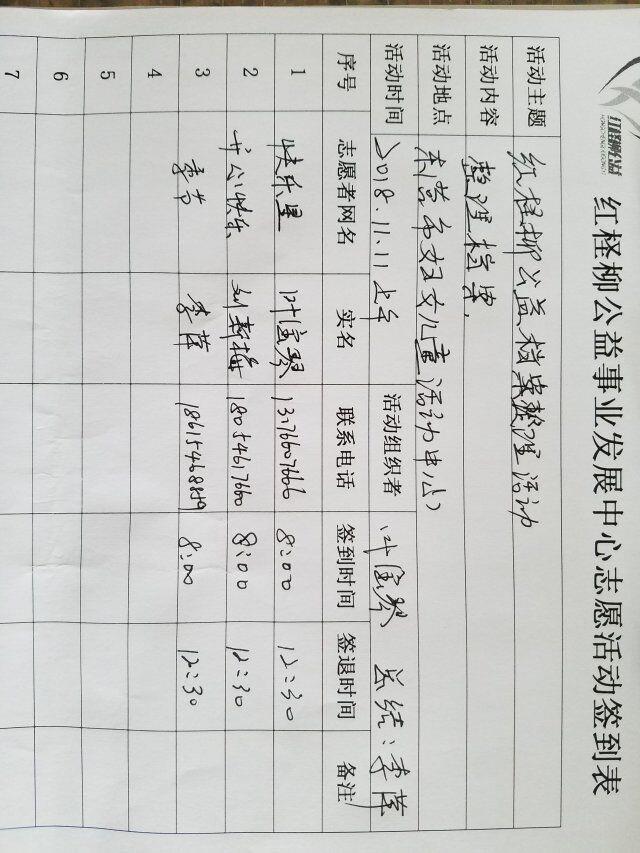 红柽柳公益
红柽柳公益事业发展中心志愿活动签到表
活动主题 红柽柳公益档案整理活动
活动内容 整理档案.
活动地点 东营市妇女儿童活动中心
活动时间 2018.11.11上午 活动组织者 叶宝琴 总结:季萍
序号 志愿者网名 实名 联系电话 签到时间 签退时间 备注
1 快乐星 叶宝琴 13176607666 8:00 12:30
2 开心快乐 刘新梅 18054617660 8:00 12:30
3 季节 季萍 18615468819 8:00 12:30
4
5
6
7